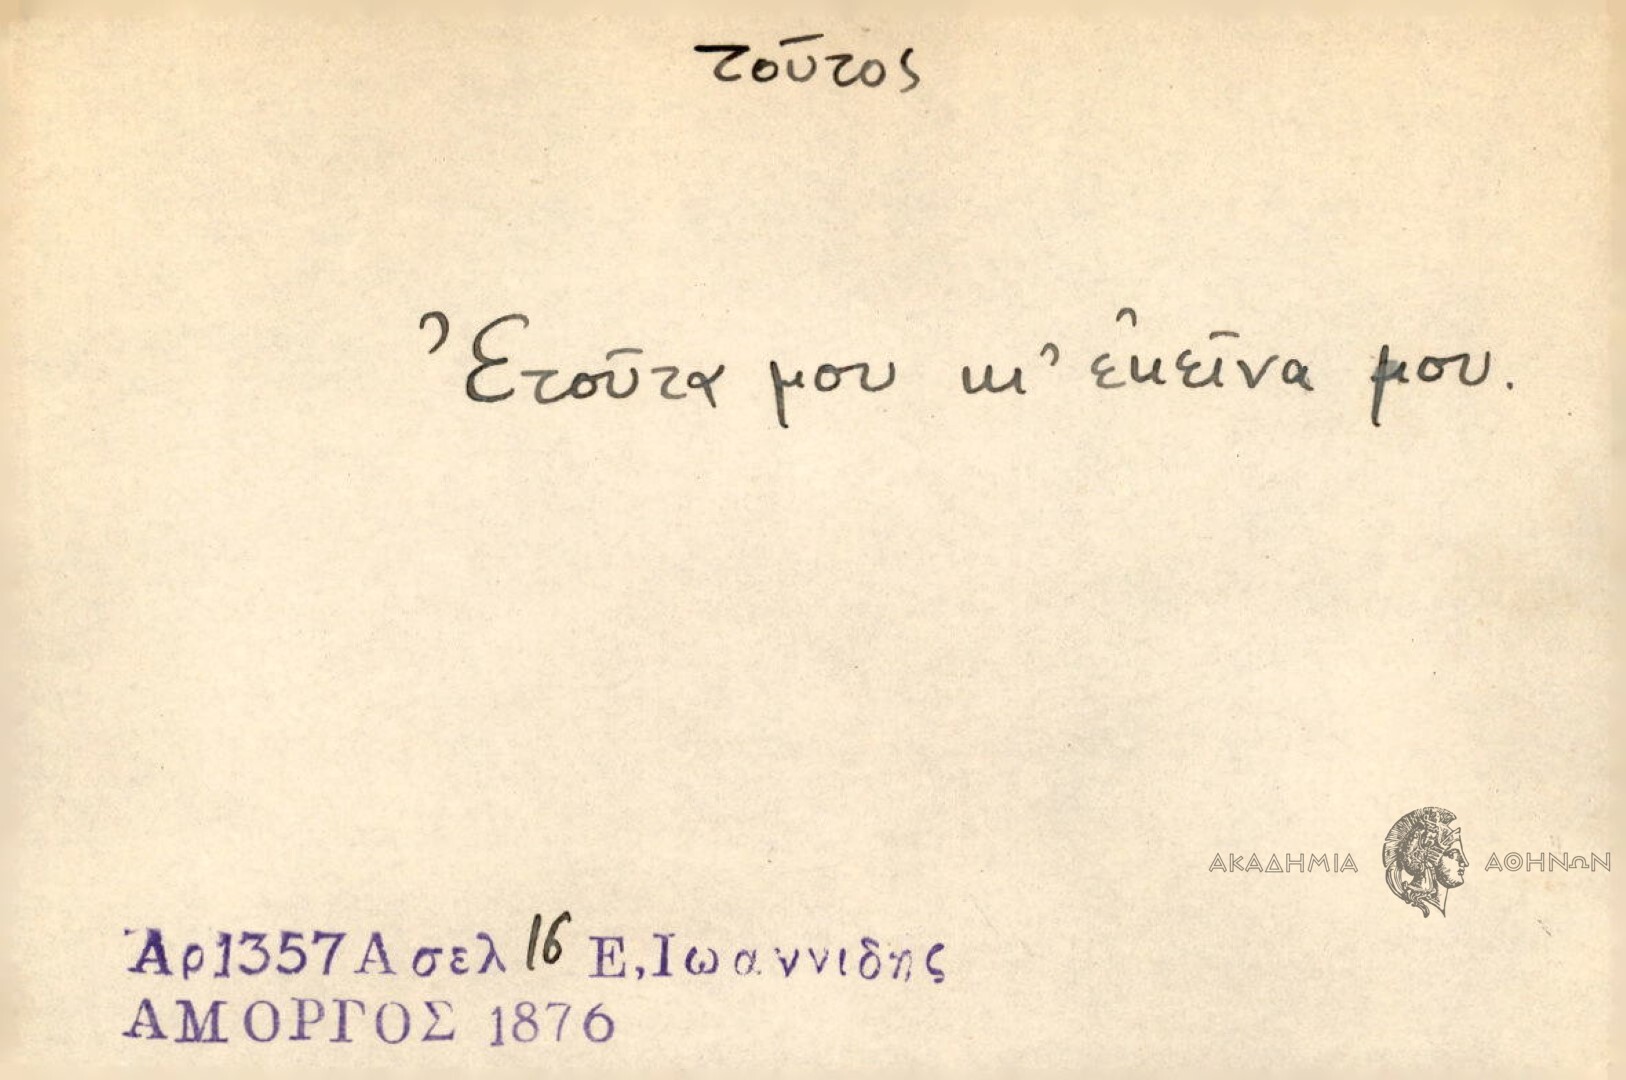 τοῦτος
Ἐτοῦτα μου κι' ἐκεῖνα μου.
ΑΚΑΔΗΜΙΑ ΑΘΗΝΩΝ
Ἀρ 1357 Α σελ 16 Ε, Ιωαννιδης
ΑΜΟΡΓΟΣ 1876